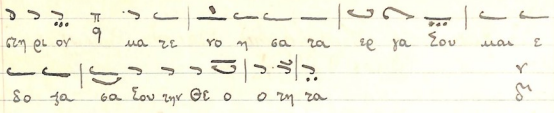 στη ρι ον κα τε νο η σα τα ερ γα σου και ε
δο ξα σα σου την Θε ο ο τη τα